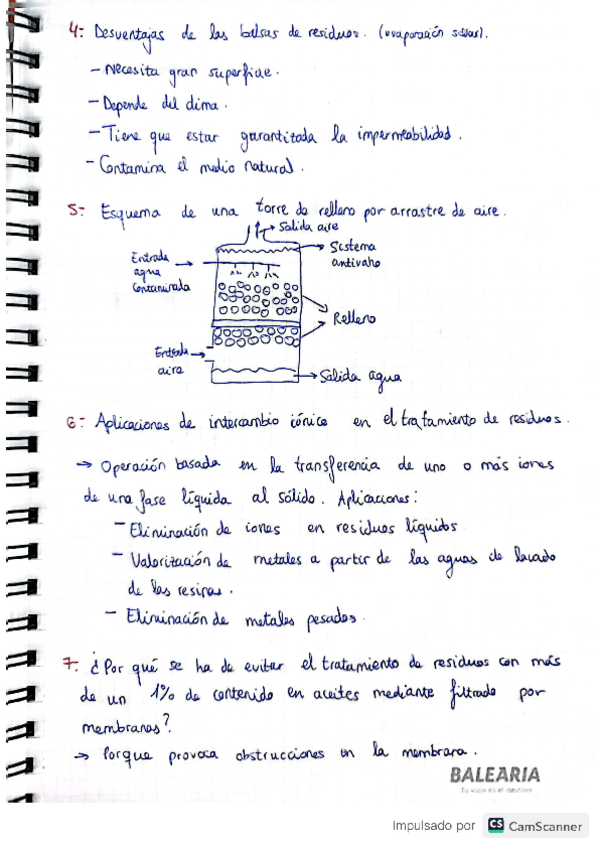 4- Desventajas de las balsas de residuos. (evaporación solar).
- Necesita gran superficie.
- Depende del clima.
- Tiene que estar garantizada la impermeabilidad.
- Contamina el medio natural.
5- Esquema de una torre de relleno por arrastre de aire.
Salida aire
Sistema
antivaho
Entrada
agua
contaminada
Relleno
Entrada
aire
Salida agua
6- Aplicaciones de intercambio iónico en el tratamiento de residuos.
→ Operación basada en la transferencia de uno o más iones
de una fase líquida al sólido. Aplicaciones:
- Eliminación de iones en residuos líquidos
- Valorización de metales a partir de las aguas de lavado
de las resinas.
- Eliminación de metales pesados.
7- ¿Por qué se ha de evitar el tratamiento de residuos con más
de un 1% de contenido en aceites mediante filtrado por
membranas?
→ Porque provoca obstrucciones en la membrana.
BALEARIA
Tu viaje es el destino
Impulsado por CS CamScanner